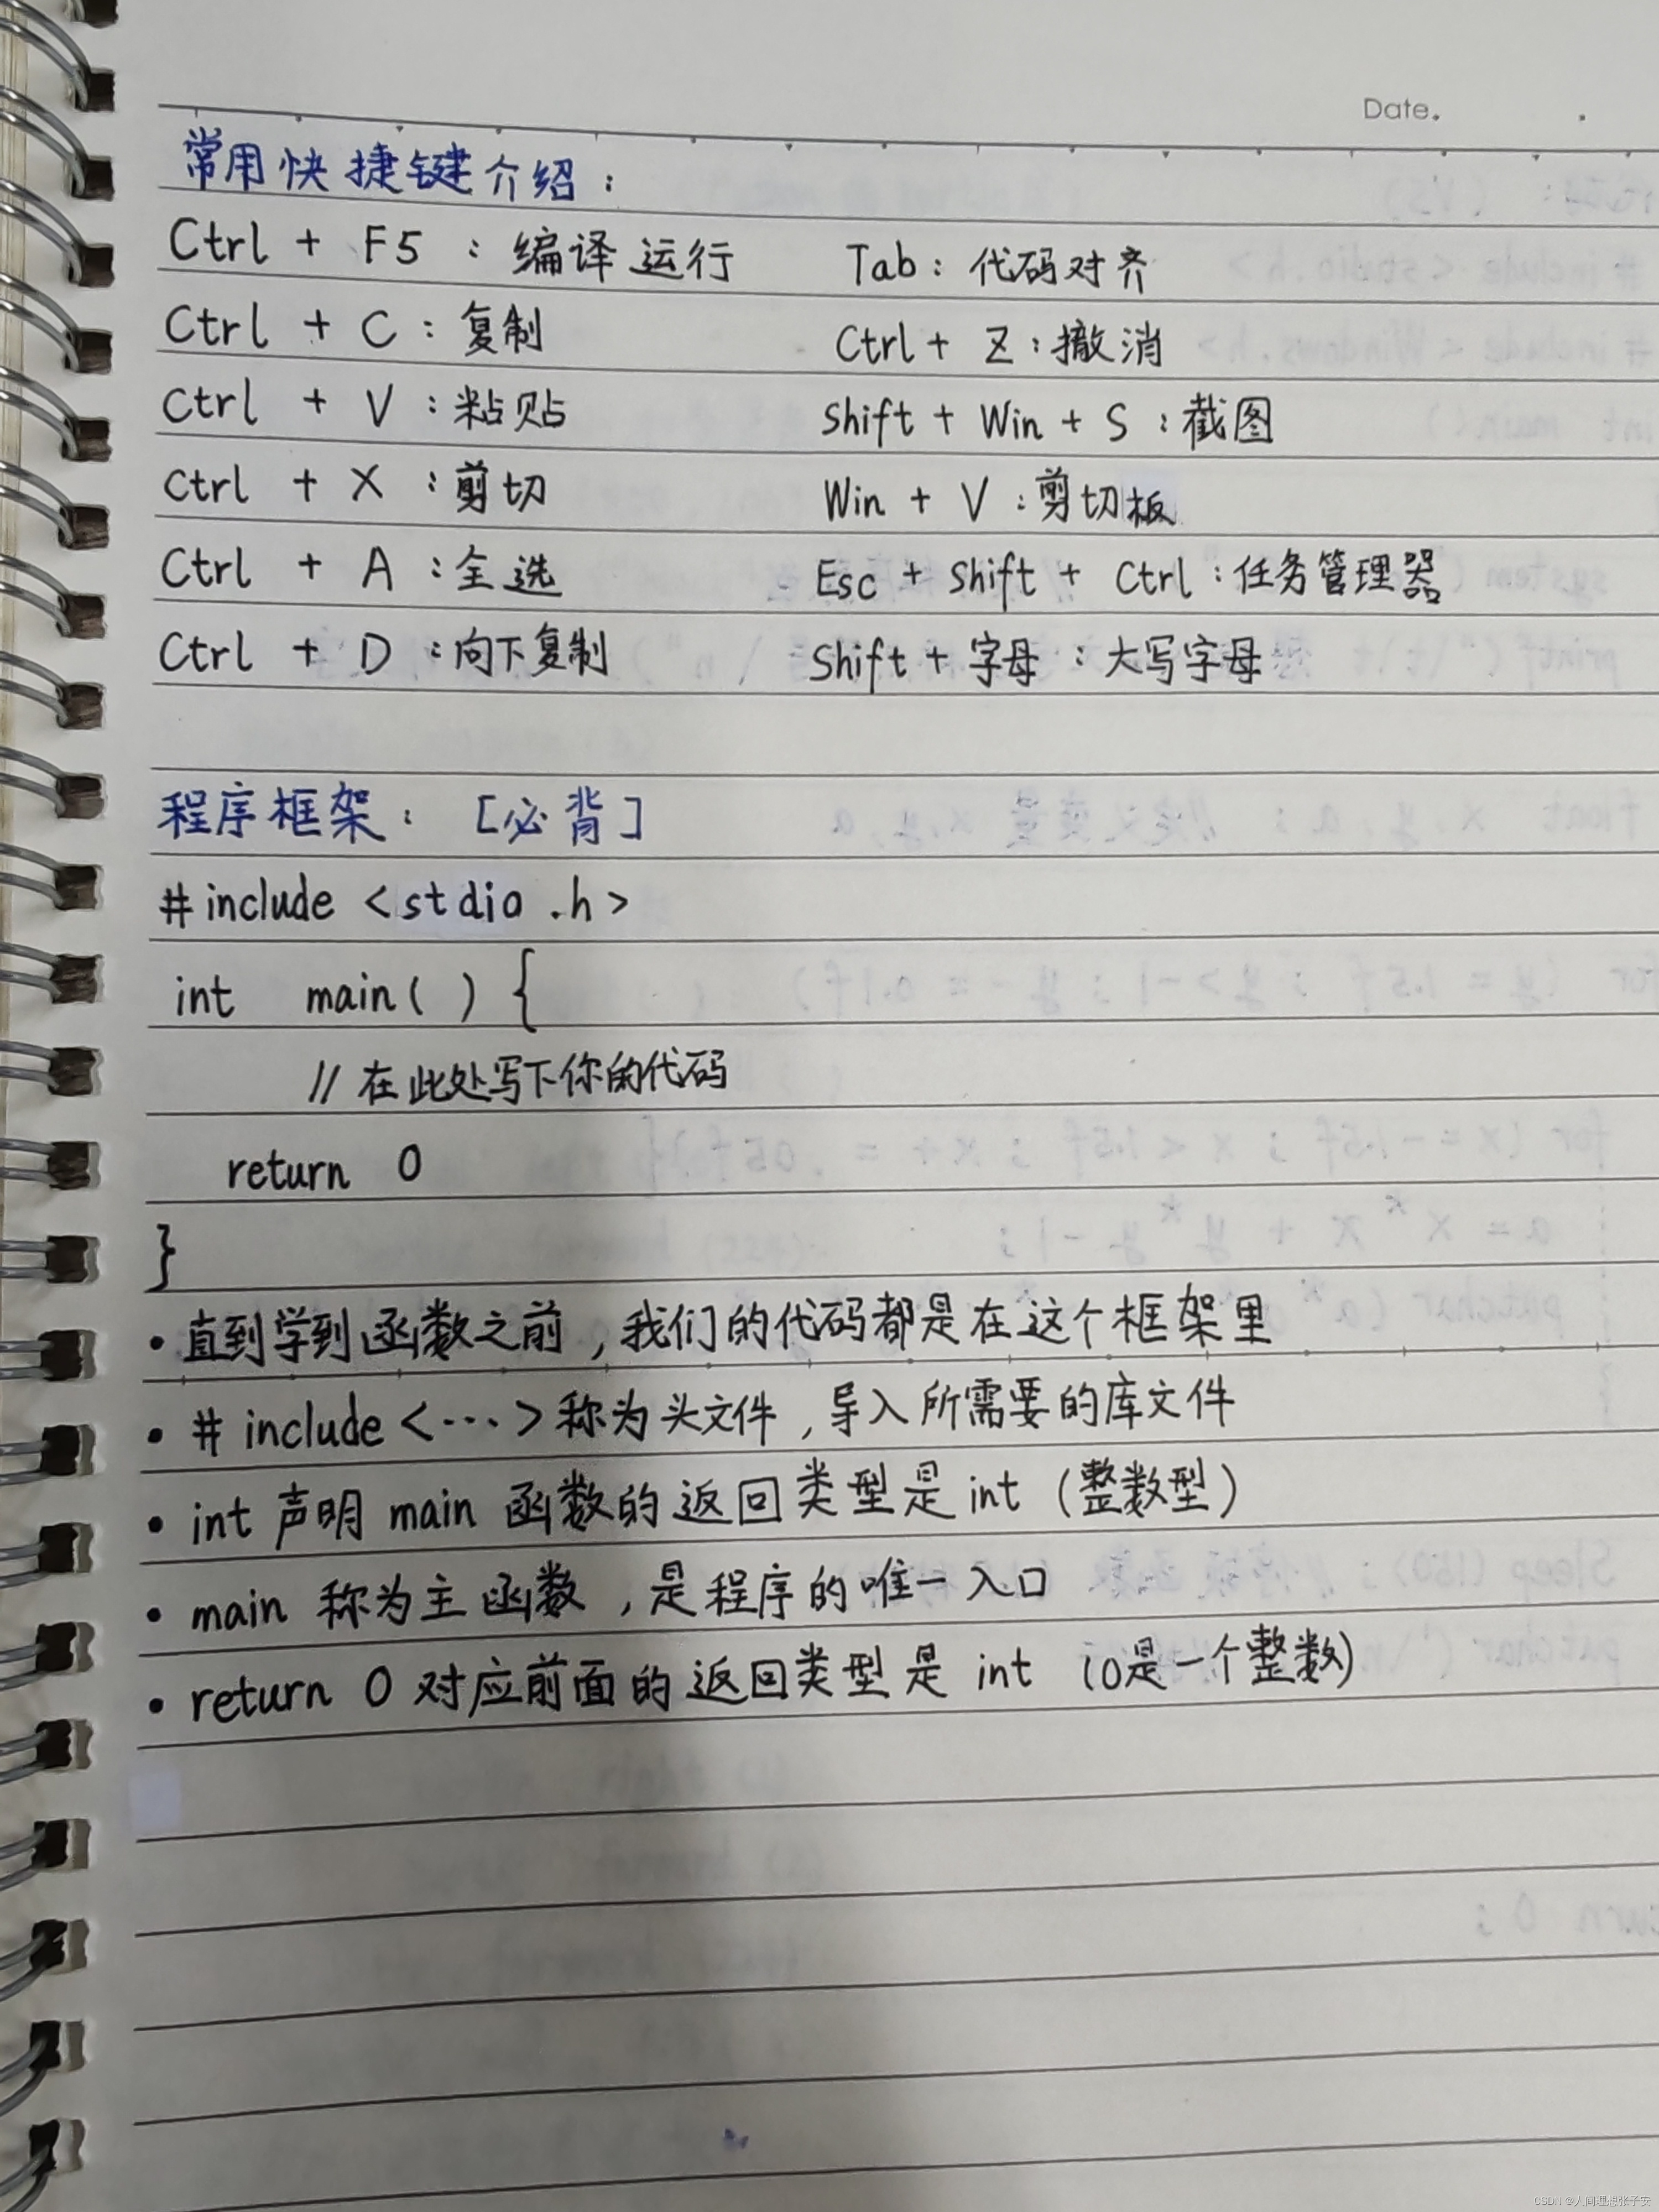 Date.
常用快捷键介绍：
Ctrl + F5 ：编译运行 Tab：代码对齐
Ctrl + C：复制 Ctrl + Z：撤消
Ctrl + V：粘贴 Shift + Win + S：截图
Ctrl + X：剪切 Win + V：剪切板
Ctrl + A：全选 Esc + Shift + Ctrl：任务管理器
Ctrl + D：向下复制 Shift + 字母：大写字母
程序框架：[必背]
#include <stdio.h>
int main( ) {
// 在此处写下你的代码
return 0
}
• 直到学到函数之前，我们的代码都是在这个框架里
• # include <···> 称为头文件，导入所需要的库文件
• int 声明 main 函数的返回类型是 int (整数型)
• main 称为主函数，是程序的唯一入口
• return 0 对应前面的返回类型是 int (0是一个整数)
CSDN @人间理想张子安